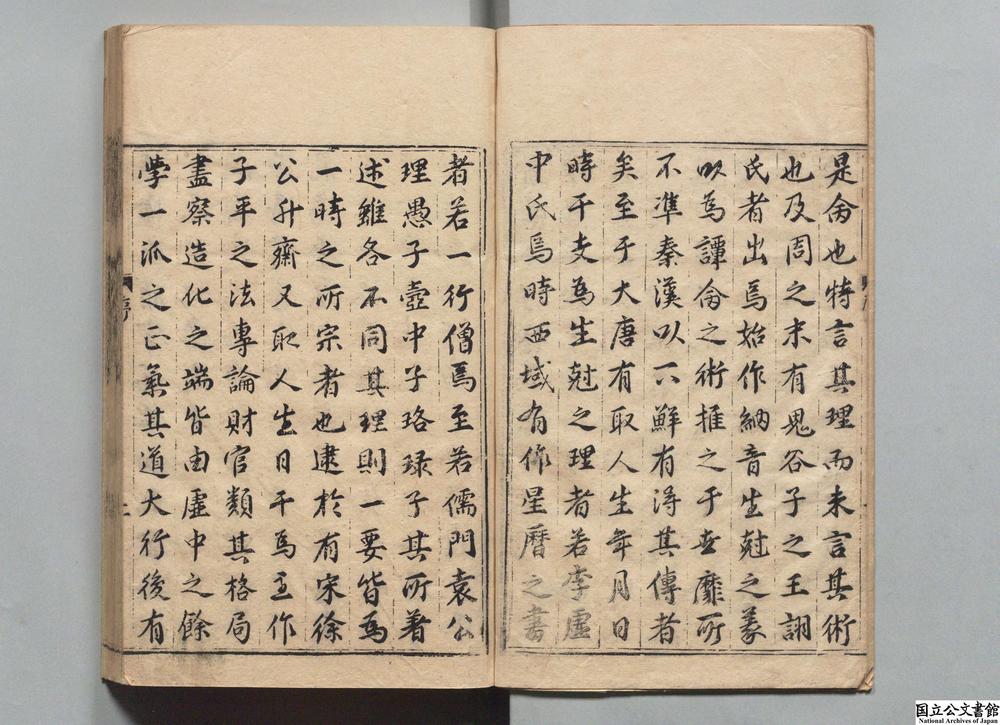 是侖也特言其理而未言其術
也及周之末有鬼谷子之王詡
氏者出焉始作納音生尅之義
以為譚侖之術推之于世靡所
不準秦漢以下鮮有得其傳者
矣至于大唐有取人生年月日
時干支為生尅之理者若李虛
中氏焉時西域有作星曆之書
者若一行僧焉至若儒門袁公
理愚子壺中子珞琭子其所著
述雖各不同其理則一要皆為
一時之所宗者也逮於有宋徐
公升齋又取人生日干為主作
子平之法專論財官類其格局
盡察造化之端皆由虛中之餘
學一派之正氣其道大行後有
序
二
国立公文書館
National Archives of Japan